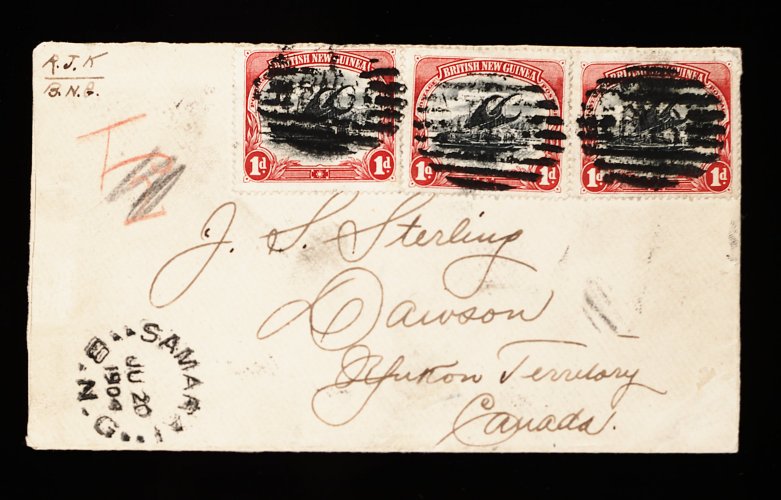 R.J.K
B.N.G.
BRITISH NEW GUINEA
1d 1d
BRITISH NEW GUINEA
1d 1d
BRITISH NEW GUINEA
1d 1d
J. S. Sterling
Dawson
Yukon Territory
Canada.
SAMARA
JU 20
1904
B.N.G.